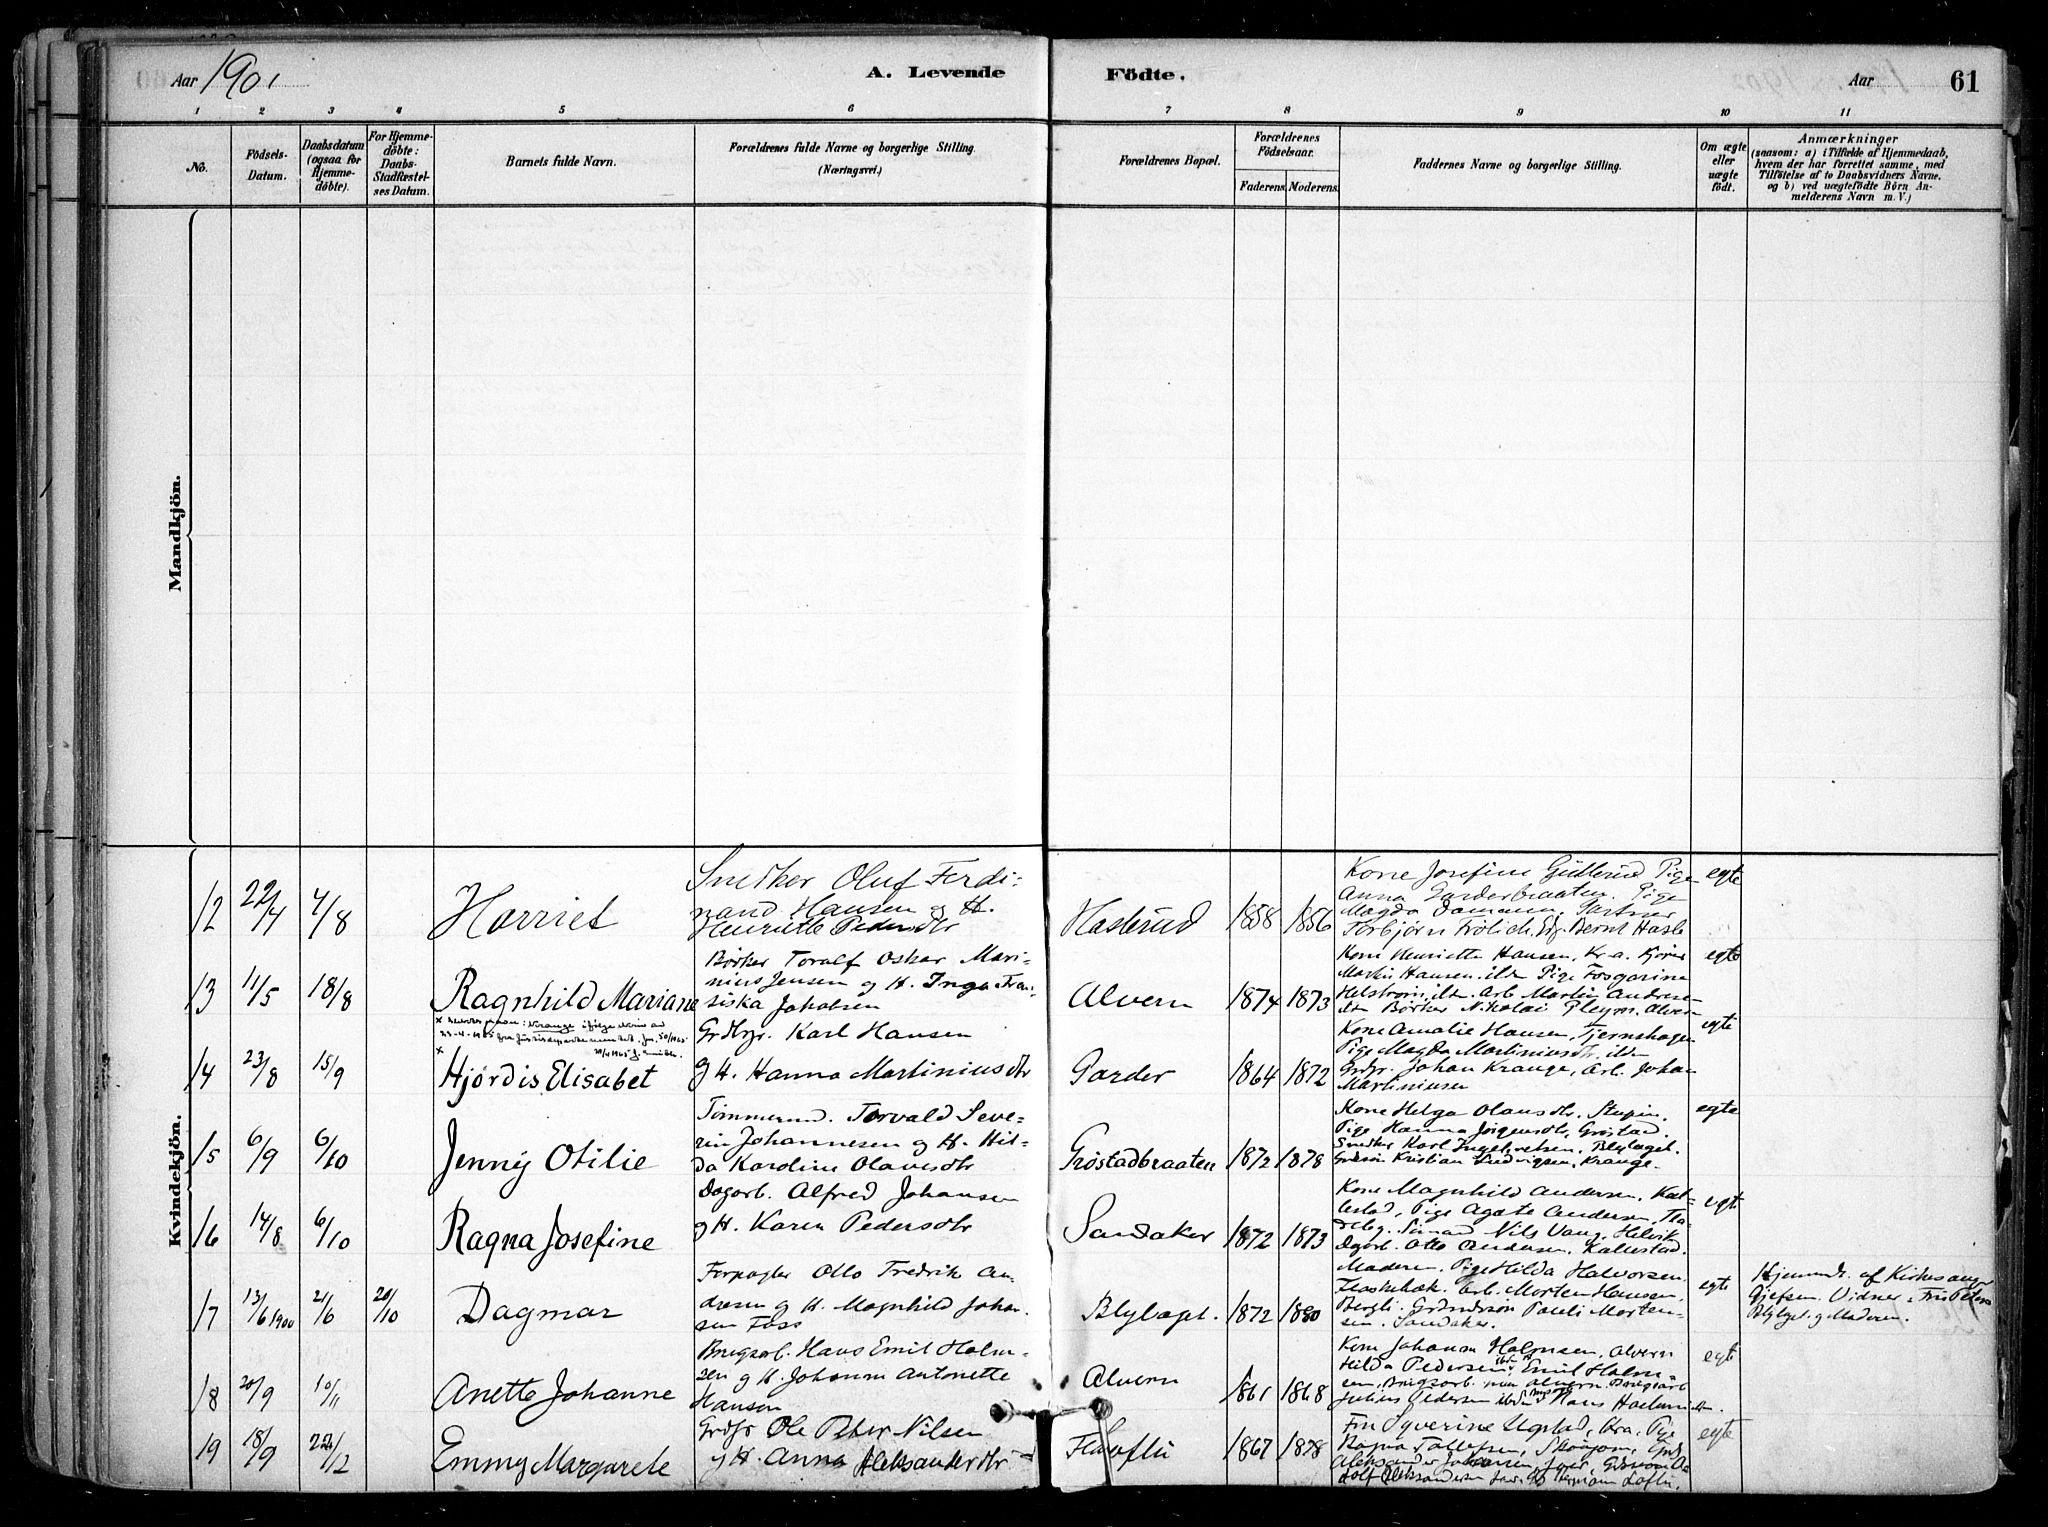 Aar 1901
A. Levende
Födte.
Aar
61
1 2 3 4 5 6 7 8 9 10 11
No.
Födsels-
Datum.
Daabsdatum
(ogsaa for
Hjemme-
döbte).
For Hjemme-
döbte:
Daabs-
Stadfæstel-
ses Datum.
Barnets fulde Navn.
Forældrenes fulde Navne og borgerlige Stilling.
(Næringsvei.)
Forældrenes Bopæl.
Forældrenes
Födselsaar.
Faderens. Moderens.
Faddernes Navne og borgerlige Stilling.
Om ægte
eller
uægte
födt.
Anmærkninger
(saasom: a) i Tilfælde af Hjemmedaab,
hvem der har forrettet samme, med
Tilföielse af to Daabsvidners Navne.
og b) ved uægtefödte Börn An-
melderens Navn m. V.)
Mandkjön.
Kvindekjön.
12
22/4
4/8
Harriet
Snedker Oluf Ferdi-
nand Hansen og H.
Henriette Pedersdtr
Hasterud
1858
1856
Kone Josefine Gullerud Pige
Anna Garderbraaten. Pige
Magda Damann. Gartner
Torbjørn Frölich. Bernt Hasle
egte
13
11/5
18/8
Ragnhild Mariane
Børker Toralf Oskar Mari-
nius Jensen og H. Inga Fran-
siska Jakobsen
Alvern
1874
1873
Kone Henriette Hansen, Kr.a.
Martin Hansen. ibdm Pige
Helstrøm, ibdm. Arb. Martin Andrese
ibdm Børker Nikolai Pleym. Alvern
egte
14
23/8
15/9
Hjördis Elisabet
Grdbr. Karl Hansen
og H. Hanna Martiniusdtr
Garder
1864
1872
Kone Amalie Hansen, Tjernshagen
Pige Magda Martiniusdtr, ibdm
Grdbr. Johan Krange, Arb. Johan
Martiniusen
egte
15
6/9
6/10
Jenny Otilie
Tømmermd. Torvald Seve-
rin Johannesen og H. Hil-
da Karoline Olavesdtr
Grøstadbraaten
1872
1878
Kone Helga Olausdtr.
Pige Hanna Jörgensdtr, Grøstad
Snedker Karl Ingebretsen. Blylaget.
Kristian Ludvigsen, Krange.
egte
16
14/8
6/10
Ragna Josefine
Dagarb. Alfred Johansen
og H. Karen Pedersdtr
Sandaker
1872
1873
Kone Magnhild Andersen. Kal-
lestad, Pige Agate Andersen,
Nils Vang, Helvik
Dagarb. Otto Andersen. Kallestad.
egte
17
13/6 1900
21/6
20/10
Dagmar
Forpagter Otto Fredrik An-
dresen og H. Magnhild Johan-
sen Foss
Blylaget.
1872
1880
Moderen. Pige Hilda Halvorsen.
Arb. Morten Hansen,
Bergli. Grdmdssøn Pauli Morten-
sen. Sandaker.
egte
Hjemmedr. af Kirkesanger
Gjefsen. Vidner: Fru Peters
Blylaget. og Moderen.
18
20/9
10/11
Anette Johanne
Brugsarb. Hans Emil Holm-
sen og H. Johanne Antonette
Hansen
Alvern
1861
1868
Kone Johanna Holmsen, Alvern
Hilda Pedersen ibdm Emil Holm-
sen, Brugsarb. Alvern. Brugsarb
Julius Pedersen ibdm Hans
egte
19
18/9
22/12
Emmy Margarete
Grdbr Ole Peter Nilsen
og H. Anna Aleksanderdtr
1867
1878
Fru Syverine Ugstad, Kra, Pige
Ragna Tollefsen,
Aleksander Johansen
Aleksandersen
egte